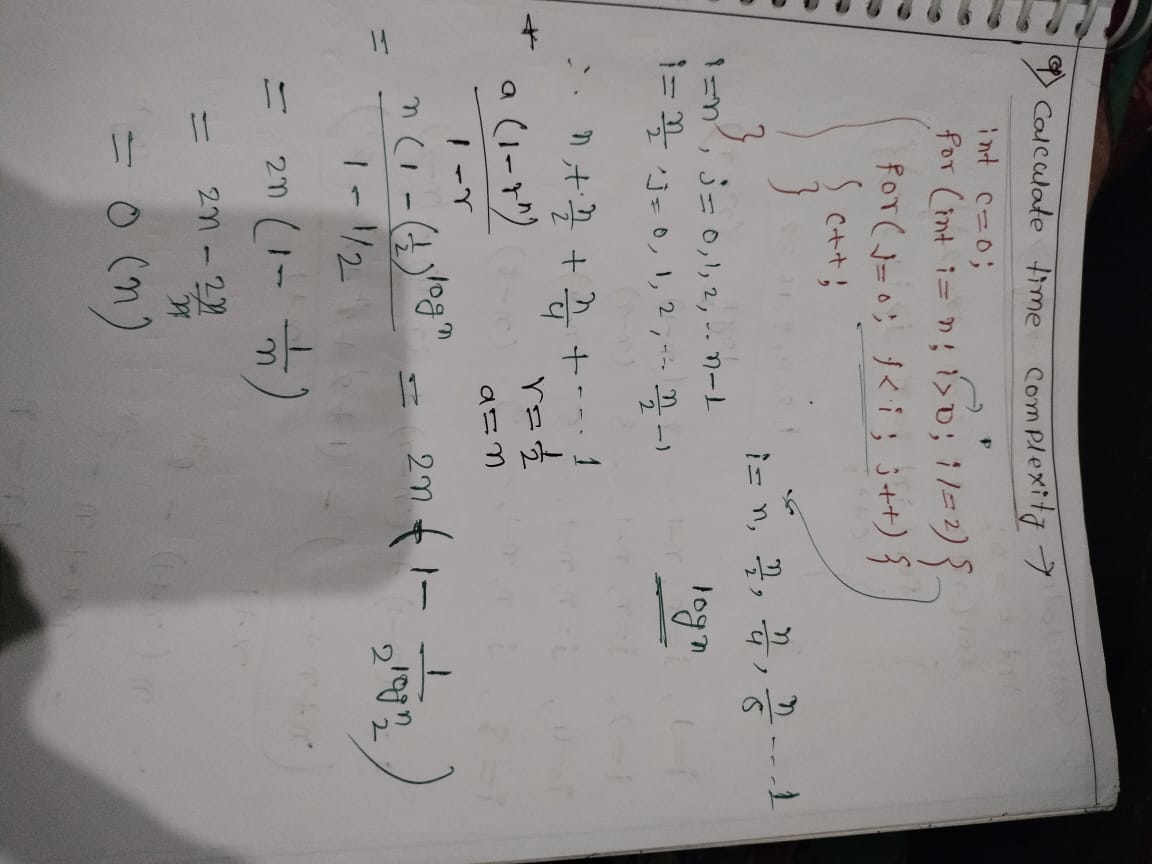 Q) Calculate time complexity →
int c=0;
for (int i=n; i>0; i/=2) {
for (j=0; j<i; j++) {
{ c++;
}
}
i = n, n/2, n/4, n/8 ---1
i=n, j=0,1,2,..n-1
log n
i=n/2, j=0,1,2,--- n/2-1
∴ n + n/2 + n/4 + ---- 1
r=1/2
a=n
a(1-r^n)/1-r
= n(1-(1/2)^log n)/1-1/2 = 2n(1- 1/2^log n 2)
= 2n(1- 1/n)
= 2n - 2n/n
= O(n)